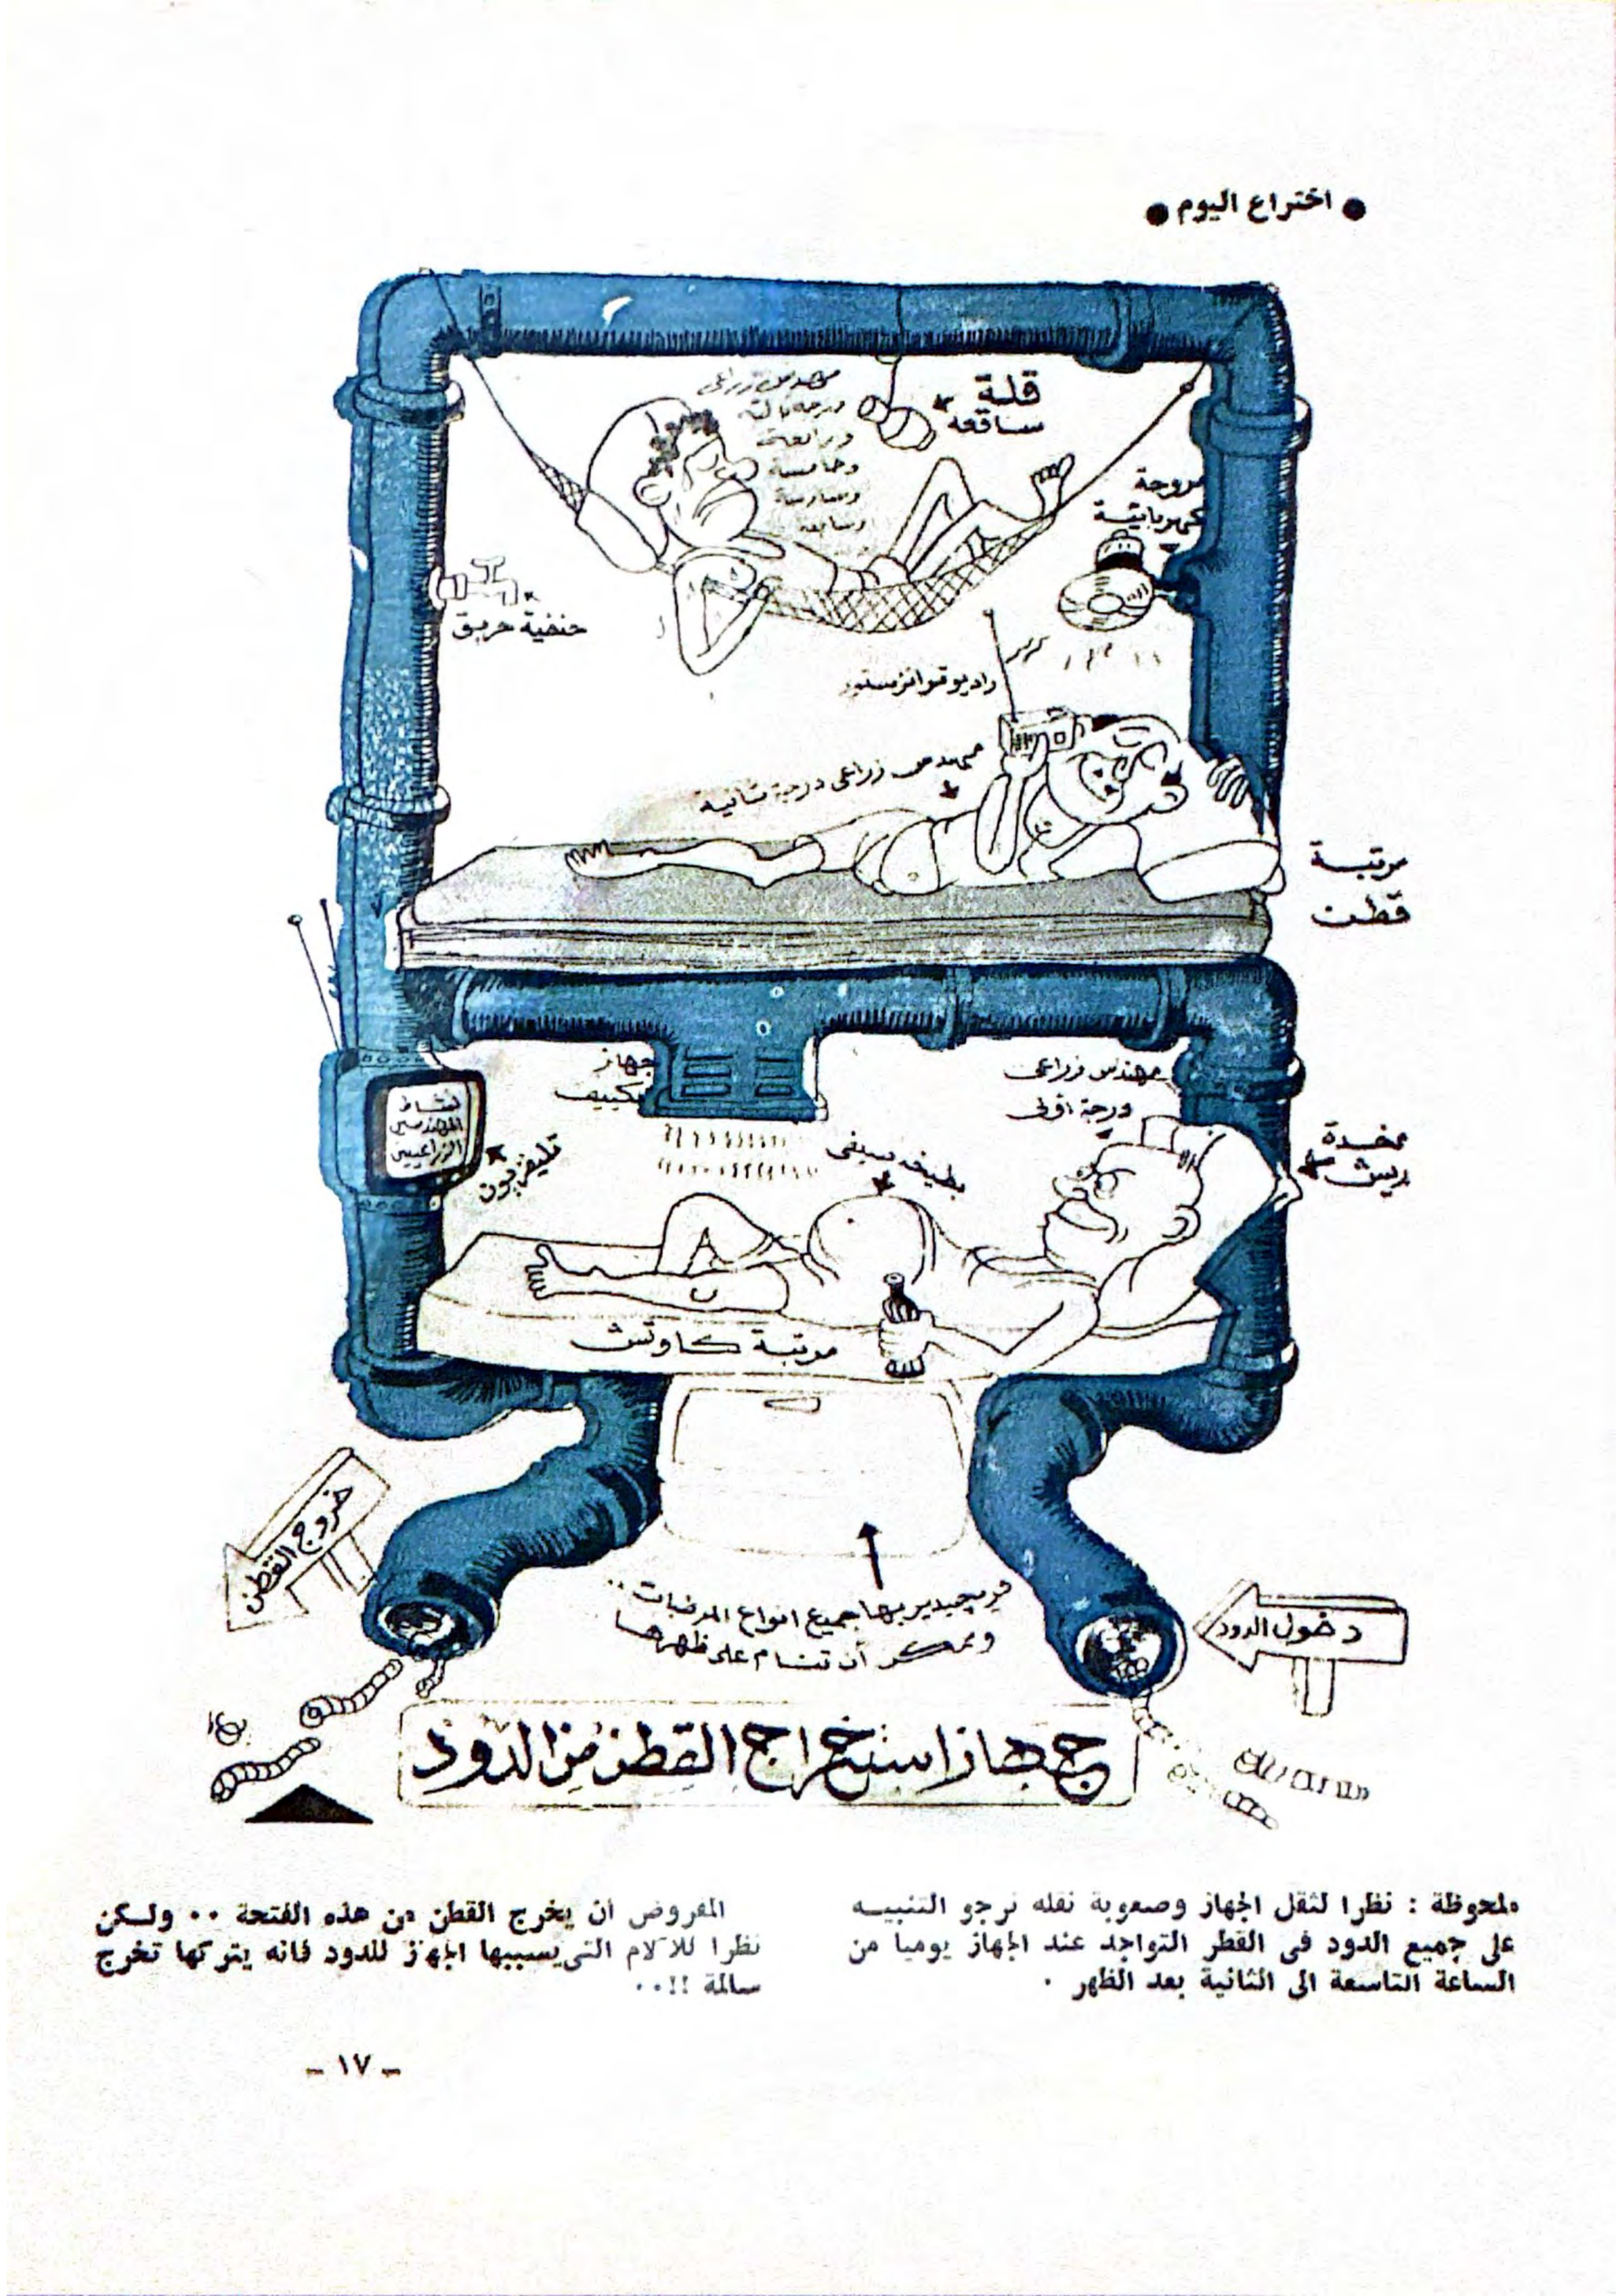 ● اختراع اليوم ●
مهندس زراعى
درجة ثالثة
ورابعة
وخامسة
وسادسة
وسابعة
قلة
ساقعه
مروحة
كهربائية
حنفية حريق
راديو ترانزستور
مهندس زراعى درجة ثانية
مرتبة
قطن
جهاز
تكييف
مهندس زراعى
درجة أولى
نشاط
المهندسين
الزراعيين
تليفزيون
بطيخ صيفى
مخدة
ريش
مرتبة كاوتش
خروج القطن
دخول الدود
فريجيدير بها جميع انواع المرطبات ..
ويمكن أن تنام على ظهرها
جهاز استخراج القطن من الدود
ملحوظة : نظرا لثقل الجهاز وصعوبة نقله نرجو التنبيه
على جميع الدود فى القطر التواجد عند الجهاز يوميا من
الساعة التاسعة الى الثانية بعد الظهر .
المفروض أن يخرج القطن من هذه الفتحة .. ولكن
نظرا للآلام التى يسببها الجهاز للدود فانه يتركها تخرج
سالمة !! ..
- ١٧ -